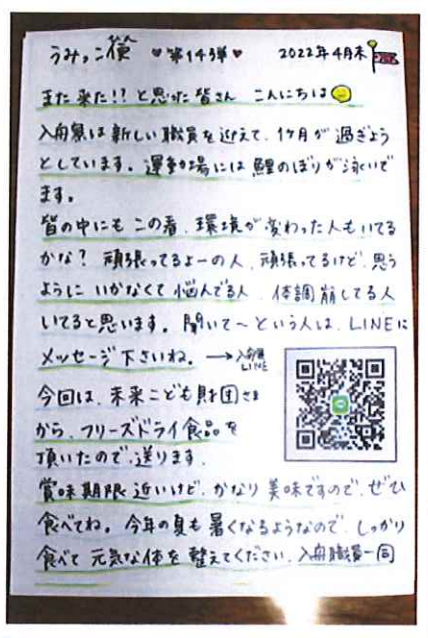 うみっこ便 ♥第14弾♥ 2022年4月末
また来た!? と思った皆さん こんにちは
入舟寮は新しい職員を迎えて、1ヶ月が過ぎよう
としています。運動場には鯉のぼりが泳いで
ます。
皆の中にもこの春、環境が変わった人もいてる
かな? 頑張ってるよーの人、頑張ってるけど、思う
ように いかなくて 悩んでる人、体調崩してる人
いてると思います。聞いて〜という人は、LINEに
メッセージ下さいね。→入舟寮
LINE
今回は、未来こども財団さま
から、フリーズドライ食品を
頂いたので、送ります。
賞味期限近いけど、かなり美味ですので、ぜひ
食べてね。今年の夏も暑くなるようなので、しっかり
食べて 元気な体を整えてください。入舟職員一同